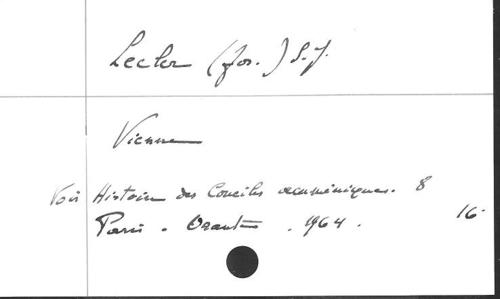 Lecler (Jos.) S.J.
Vienne
Voir Histoire des Conciles œcuméniques. 8
Paris. Orante. 1964. 16